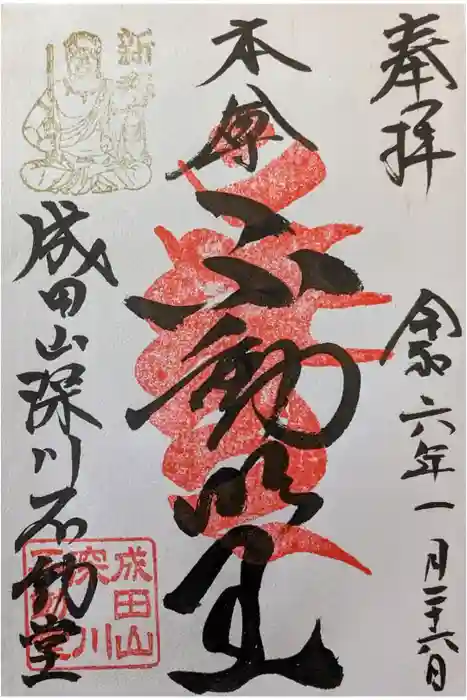 奉拝
令和六年一月二十六日
本尊
不動明王
成田山深川不動堂
成田山
深川
不動堂